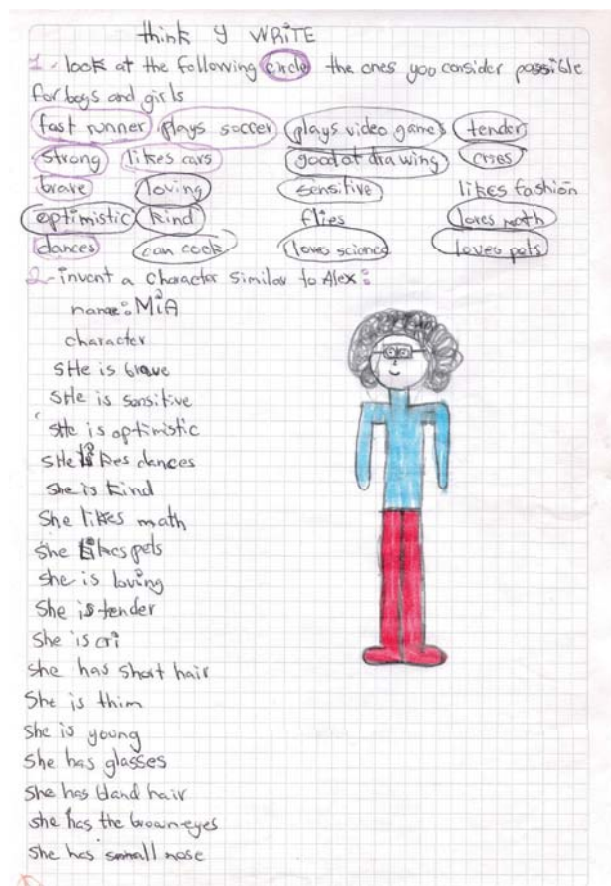 think y WRITE
1- look at the following circle the ones you consider possible
for boys and girls
fast runner plays soccer plays video games tender
strong likes cars good at drawing cries
brave loving sensitive likes fashion
optimistic kind flies loves math
dances can cook loves science loves pets
2- invent a character similar to Alex:
name: MiA
character
SHe is brave
SHe is sensitive
SHe is optimistic
SHe likes dances
She is kind
She likes math
She likes pets
She is loving
She is tender
She is cri
She has short hair
She is thim
She is young
She has glasses
She has bland hair
she has the brown eyes
She has small nose